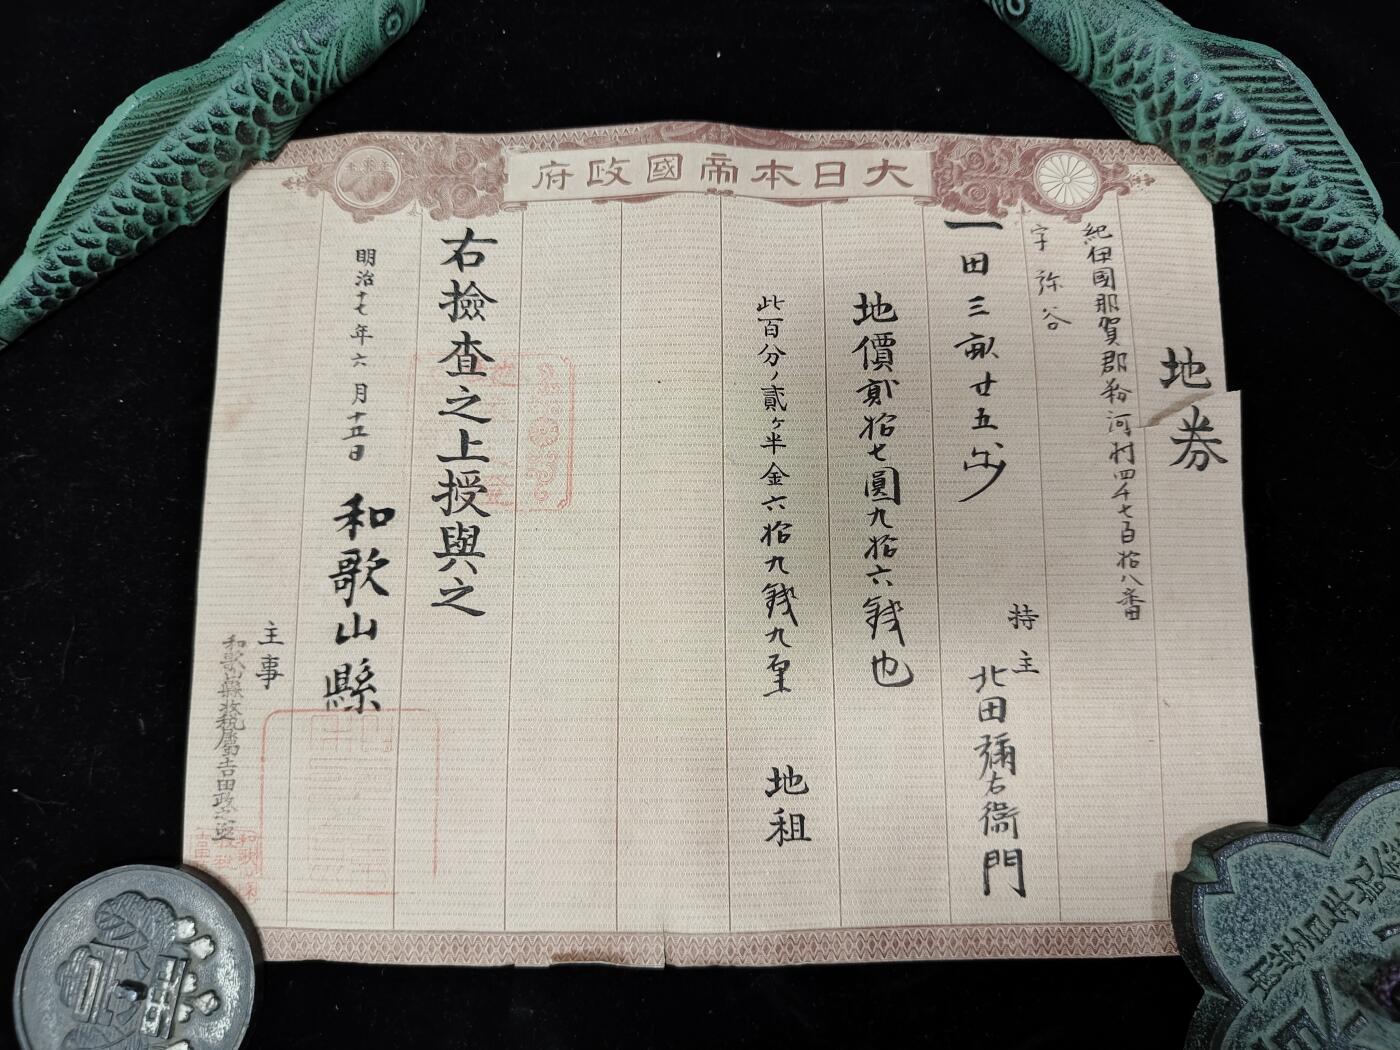 大日本帝國政府
地券
紀伊國那賀郡粉河村四千七百拾八番
字 弥谷
一田三畝廿五歩
持主 北田彌右衞門
地價貳拾七圓九拾六錢也
此百分ノ貳ヶ半金六拾九錢九厘 地租
右撿査之上授與之
明治十七年六月十五日 和歌山縣
主事
和歌山縣收税屬吉田政